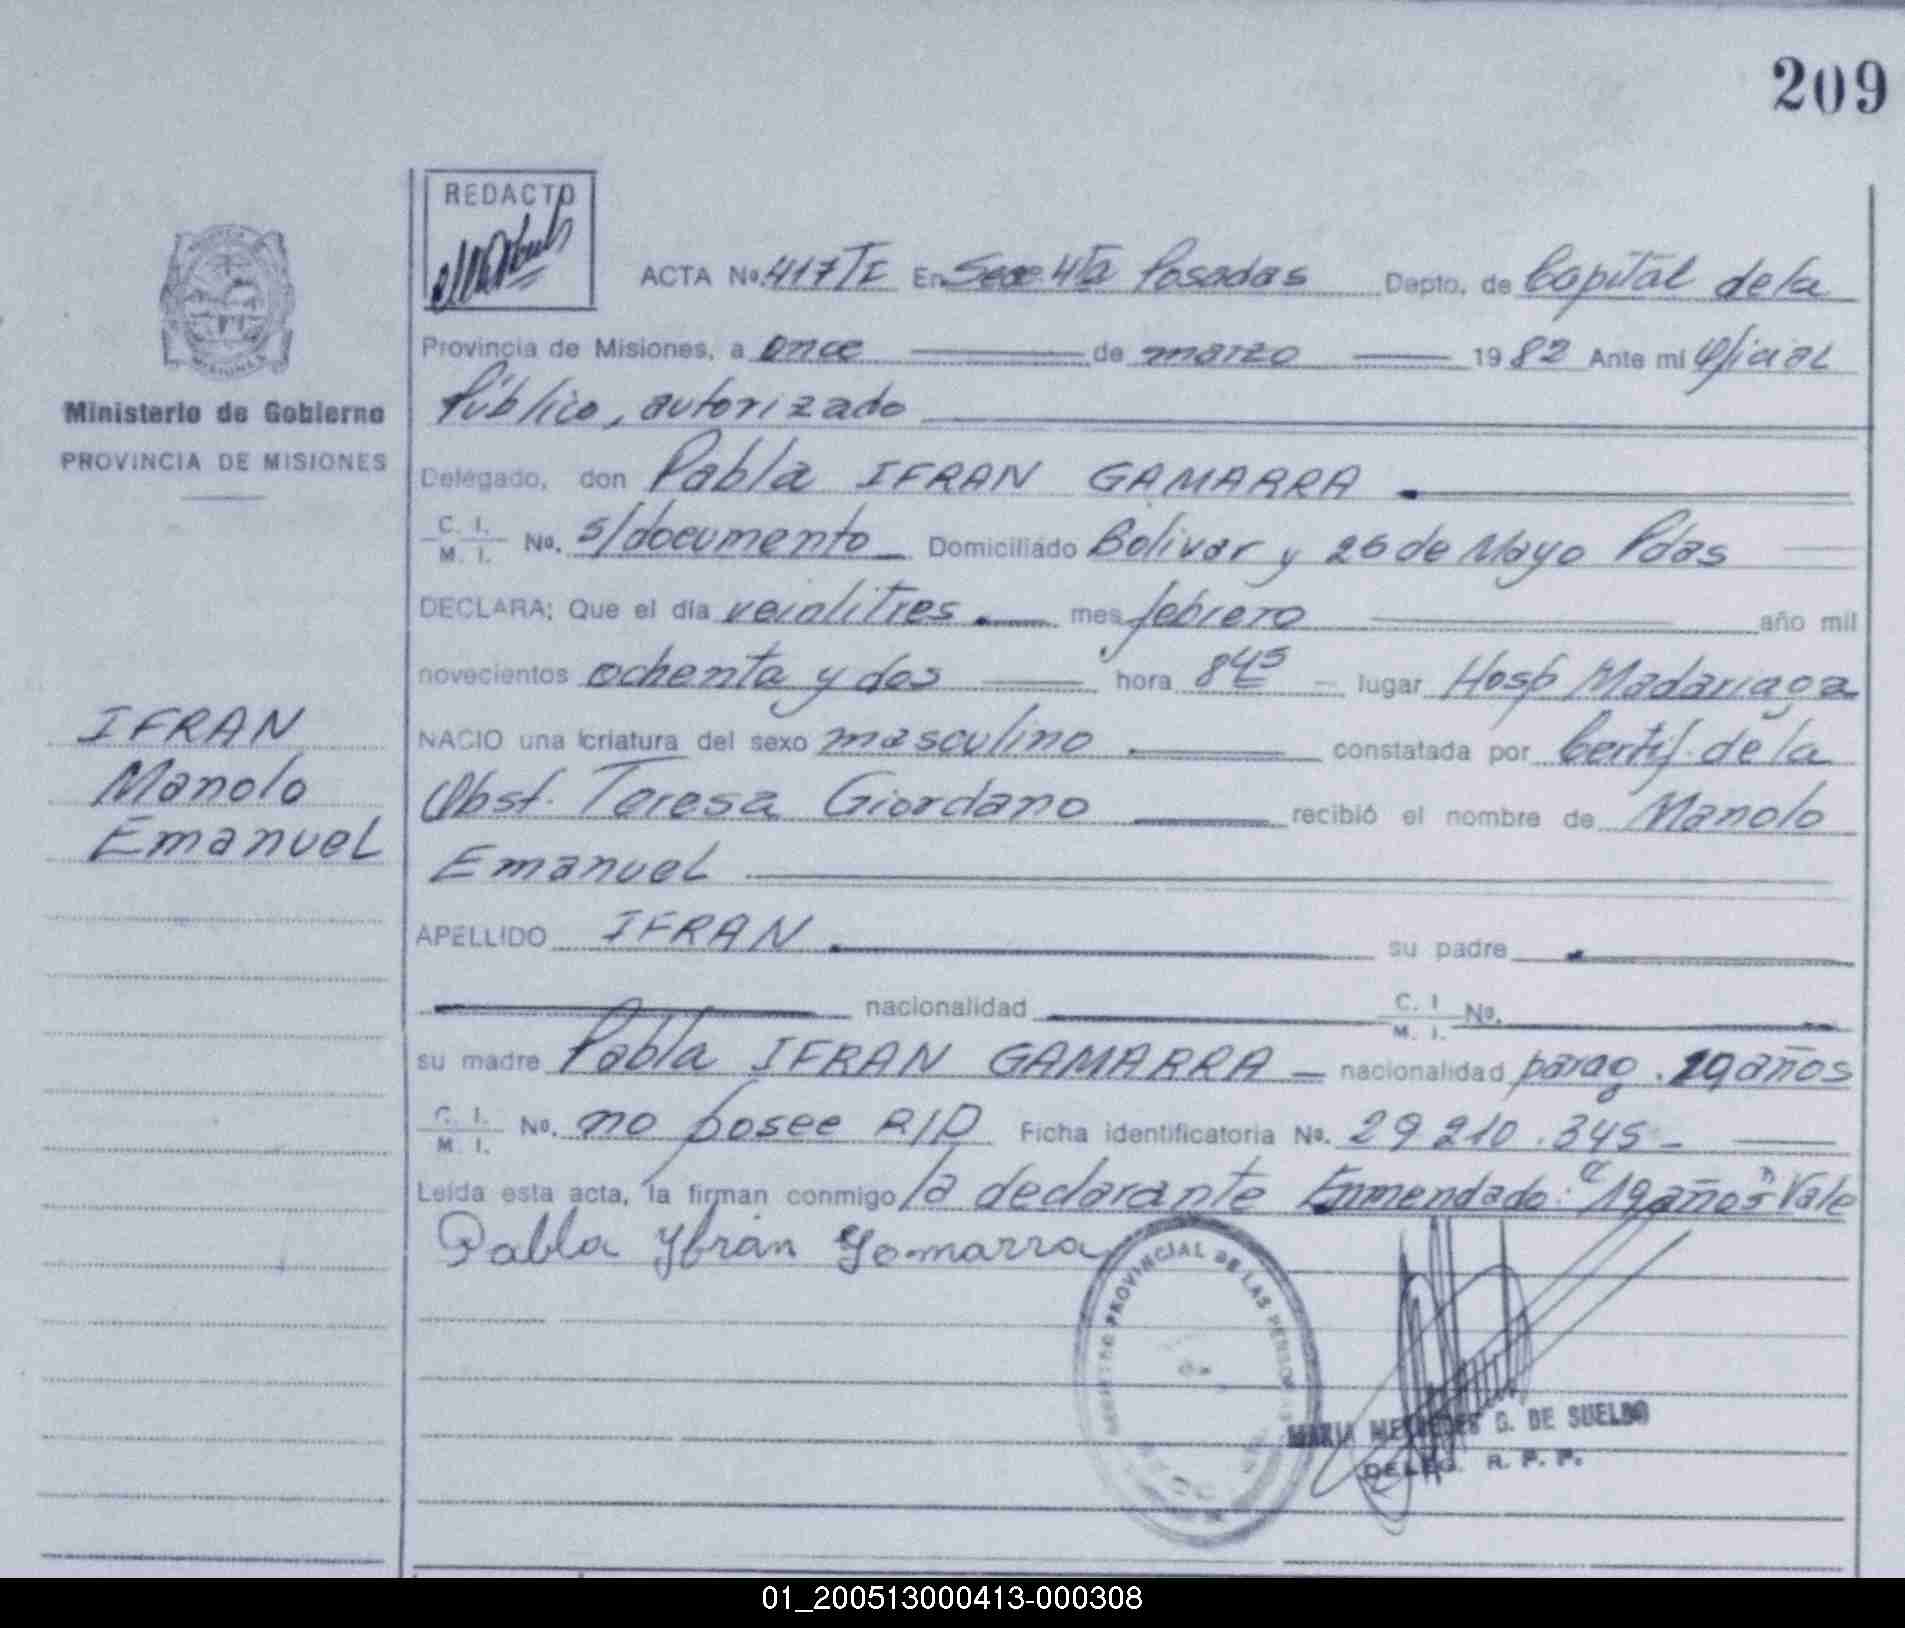 209
REDACTO
ACTA No. 417/TI En Secc. 4ta Posadas Depto. de Capital de la
Provincia de Misiones, a once de marzo 1982 Ante mi Oficial
Público, autorizado
Ministerio de Gobierno
PROVINCIA DE MISIONES
Delegado, don Pabla IFRAN GAMARRA
C. I. M. I. No. s/documento Domiciliado Bolivar y 25 de Mayo Pdas
DECLARA: Que el día veintitres mes febrero año mil
novecientos ochenta y dos hora 8 45 lugar Hosp Madariaga
IFRAN
Manolo
Emanuel
NACIO una criatura del sexo masculino constatada por Certif. de la
Obst. Teresa Giordano recibió el nombre de Manolo
Emanuel
APELLIDO IFRAN su padre
nacionalidad C. I. M. I. No.
su madre Pabla IFRAN GAMARRA nacionalidad parag. 19 años
C. I. M. I. No. no posee R/D Ficha identificatoria No. 29 210.345
Leída esta acta, la firman conmigo la declarante Enmendado: "19 años" Vale
Pabla Yfrán Gamarra
PROVINCIAL DE LAS PERSONAS
MARIA MERCEDES G. DE SUELDO
DELEG. R. P. P.
01_200513000413-000308